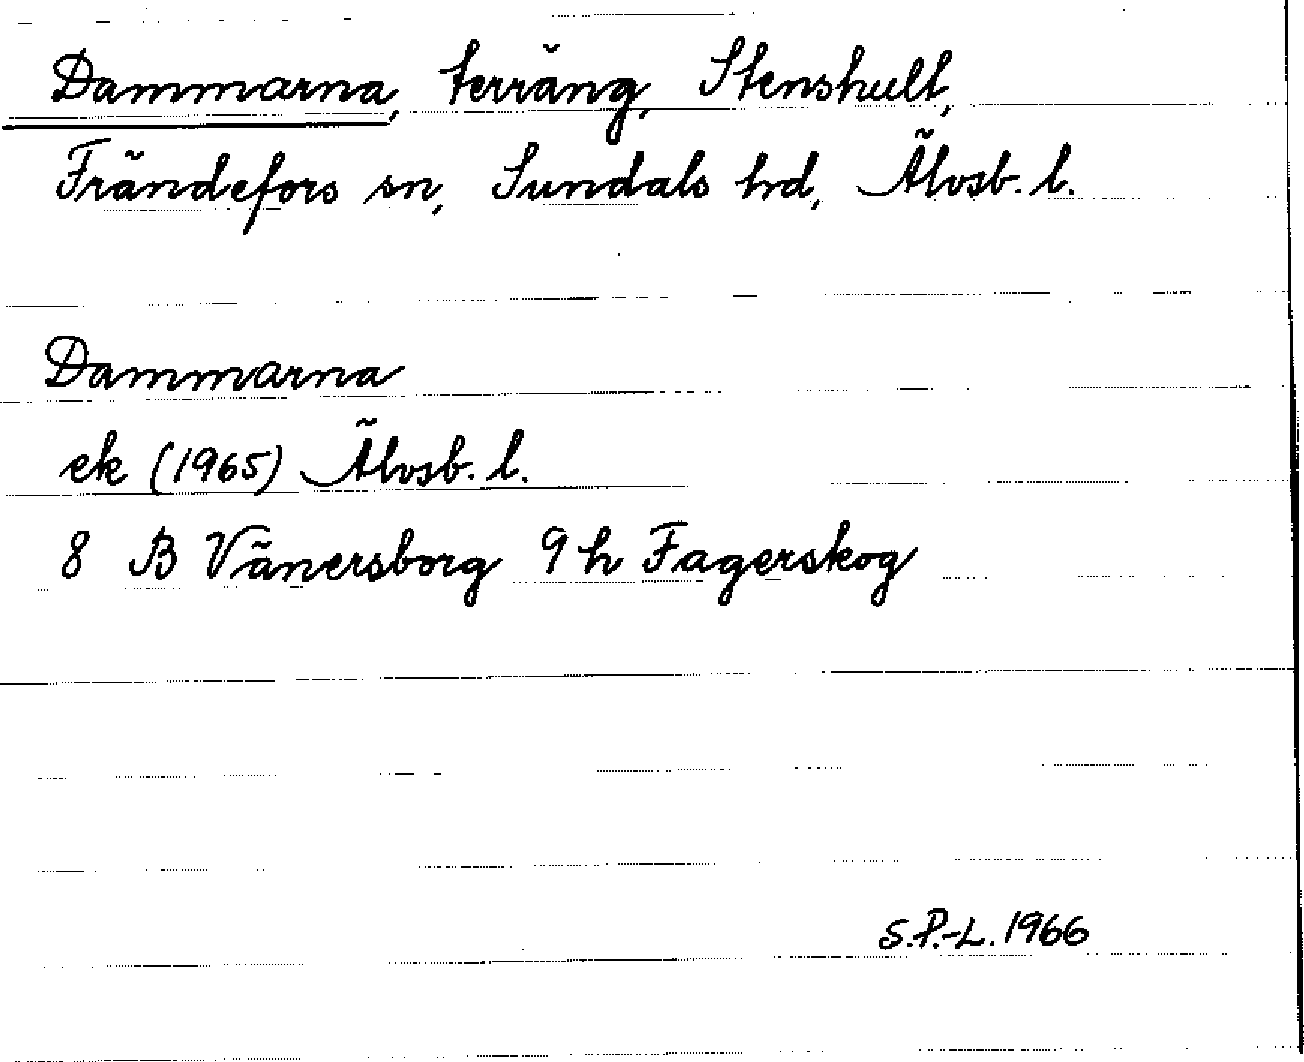 Dammarna, terräng, Stenshult,
Frändefors sn, Sundals hd, Älvsb. l.
Dammarna
ek (1965) Älvsb. l.
8 B Vänersborg 9 h Fagerskog
S.P.-L. 1966